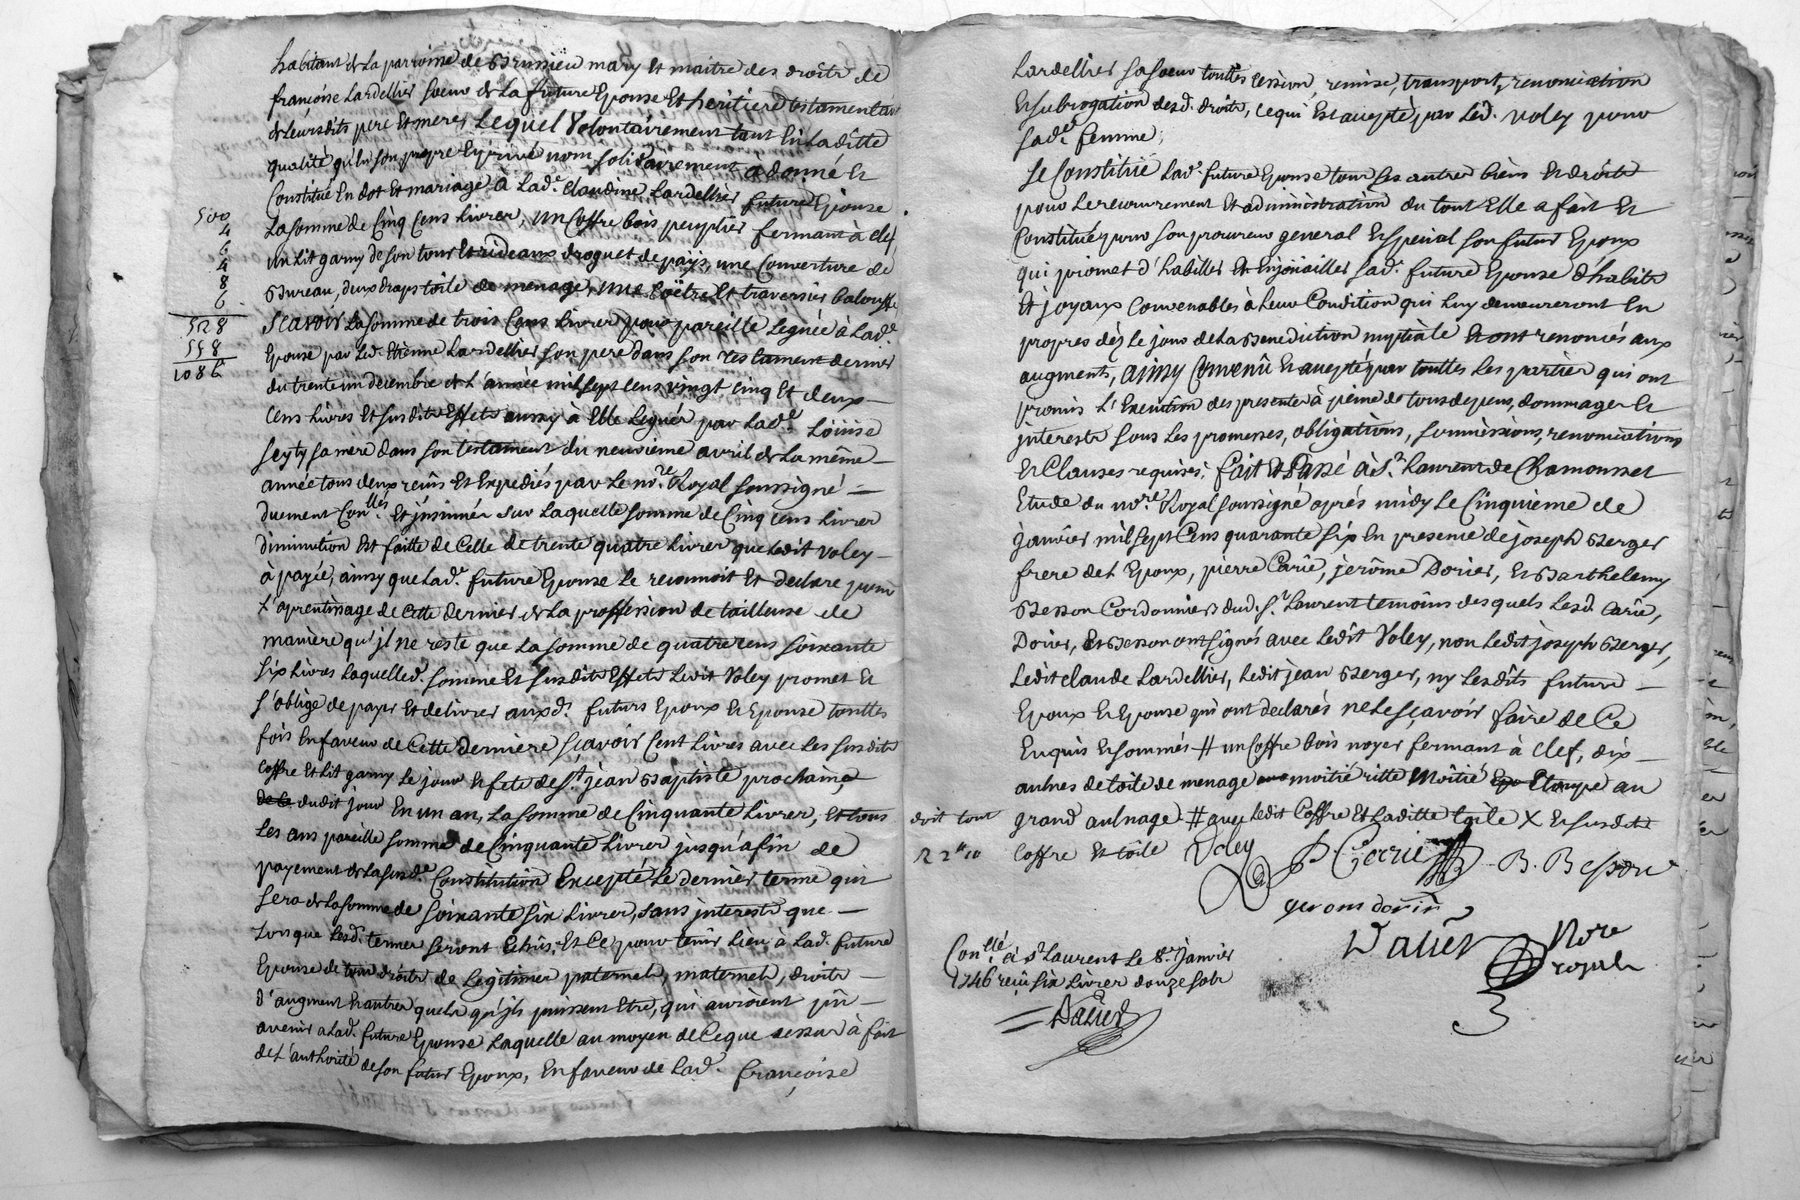 habitant de la parroisse de Brussieu mary et maitre des droits de
françoise Lardellier soeur de la future Epouse et heritiere testamentaire
de leursdits pere et mere, Lequel Volontairement tant en Laditte
qualité qu'en son propre et privé nom solidairement à donné et
Constitué en dot et mariage à Lad.e Claudine Lardellier future Epouse
La somme de Cinq Cens Livres, un Coffre bois peuplier fermant à clef,
un Lit garny de son tour et rideaux droguet de pays, une Couverture de
Bureau, deux draps toile de menage, une Coëtre et traversier balouffe
500
4
6
4
8
6
528
558
1086
Scavoir La somme de trois Cens Livres pour pareille Leguée à Lad.e
Epouse par Led. Etienne Lardellier son pere dans son testament dernier
du trente un decembre de L'année mil sept cens vingt cinq et deux
Cens Livres et susdits Effets aussy à Elle Legués par Lad.e Loüise
Seyty sa mere dans son testament du neuvieme avril de La même
année tous deux reçûs et Expediés par Le no.re Royal soussigné
duement Con.llés et jnsinués sur Laquelle somme de Cinq Cens Livres
diminution Est faitte de Celle de trente quatre Livres que Ledit Voley
à payée, ainsy que Lad.e future Epouse Le reconnoit et declare pour
L'aprentissage de Cette derniere de La proffession de tailleuse de
maniere qu'jl ne reste que La somme de quatre cens soixante
six Livres Laquelle d. somme et susdits Effets Ledit Voley promet et
s'oblige de payer et delivrer auxd.s futurs Epoux et Epouse touttes
fois en faveur de Cette derniere sçavoir Cent Livres avec Les susdits
Coffre et Lit garny Le jour et fete de S.t jean Baptiste prochaine,
dudit jour En un an, La somme de Cinquante Livres, et tous
Les ans pareille somme de Cinquante Livres jusqu'afin de
payement de La susd.e Constitution Excepté Le dernier terme qui
sera de La somme de soixante six Livres, sans interests que
Lorsque Lesd. termes seront Echûs, Et Ce pour tenir Lieu à Lad. future
Epouse de tous droits de Legitimes paternels, maternels, droits
d'augment et autres quels qu'jls puissent Etre, qui auroient pû
avenir a Lad. future Epouse Laquelle au moyen de Ce que dessus à fait
de L'authorité de son futur Epoux, en faveur de Lad. Françoise
Lardellier sa soeur touttes cession, remise, transport, renonciation
et subrogation desd. droits, Ce qui Est accepté par Led. Voley pour
sad.e femme;
Se Constitüe Lad.e future Epouse tous ses autres biens et droits
pour Le recouvrement et administration du tout Elle a fait et
Constitué pour son procureur general et special son futur Epoux
qui promet d'habiller et Enjoüailler sad.e future Epouse d'habits
et joyaux Convenables à Leur Condition qui Luy demeureront En
propres dez Le jour de La Benediction nuptiale et ont renoncés aux
augments, ainsy Convenû et accepté par touttes Les parties qui ont
promis L'Execution des presentes à peine de tous depens, dommages et
interests sous Les promesses, obligations, soumissions, renonciations
et Clauses requises: fait et Passé à S.t Laurent de Chamousset
Etude du no.re Royal soussigné aprés midy Le Cinquieme de
janvier mil sept Cens quarante six En presence de joseph Berger
frere de L'Epoux, pierre Carie, jerôme Dorier, et Barthelemy
Besson Cordonniers dud. S.t Laurent temoins desquels Lesd. Carie,
Dorier, et Besson ont signés avec Ledit Voley, non Ledit joseph Berger,
Ledit Claude Lardellier, Ledit jean Berger, ny Lesdits futurs
Epoux et Epouse qui ont declarés ne Le sçavoir faire de Ce
Enquis et sommés # un Coffre bois noyer fermant à clef, dix
aulnes de toile de menage moitié ritte moitié Etoupe au
grand aulnage # avec Ledit Coffre et Laditte toile X et susdits
Coffre et toile
doit tout
R 2 10
Voley P Carrie B. Besson
gerome dorier
Dalier Nore
royal
Con.llé à S.t Laurent Le 8.e Janvier
1746 reçû six Livres douze sols
Dalier